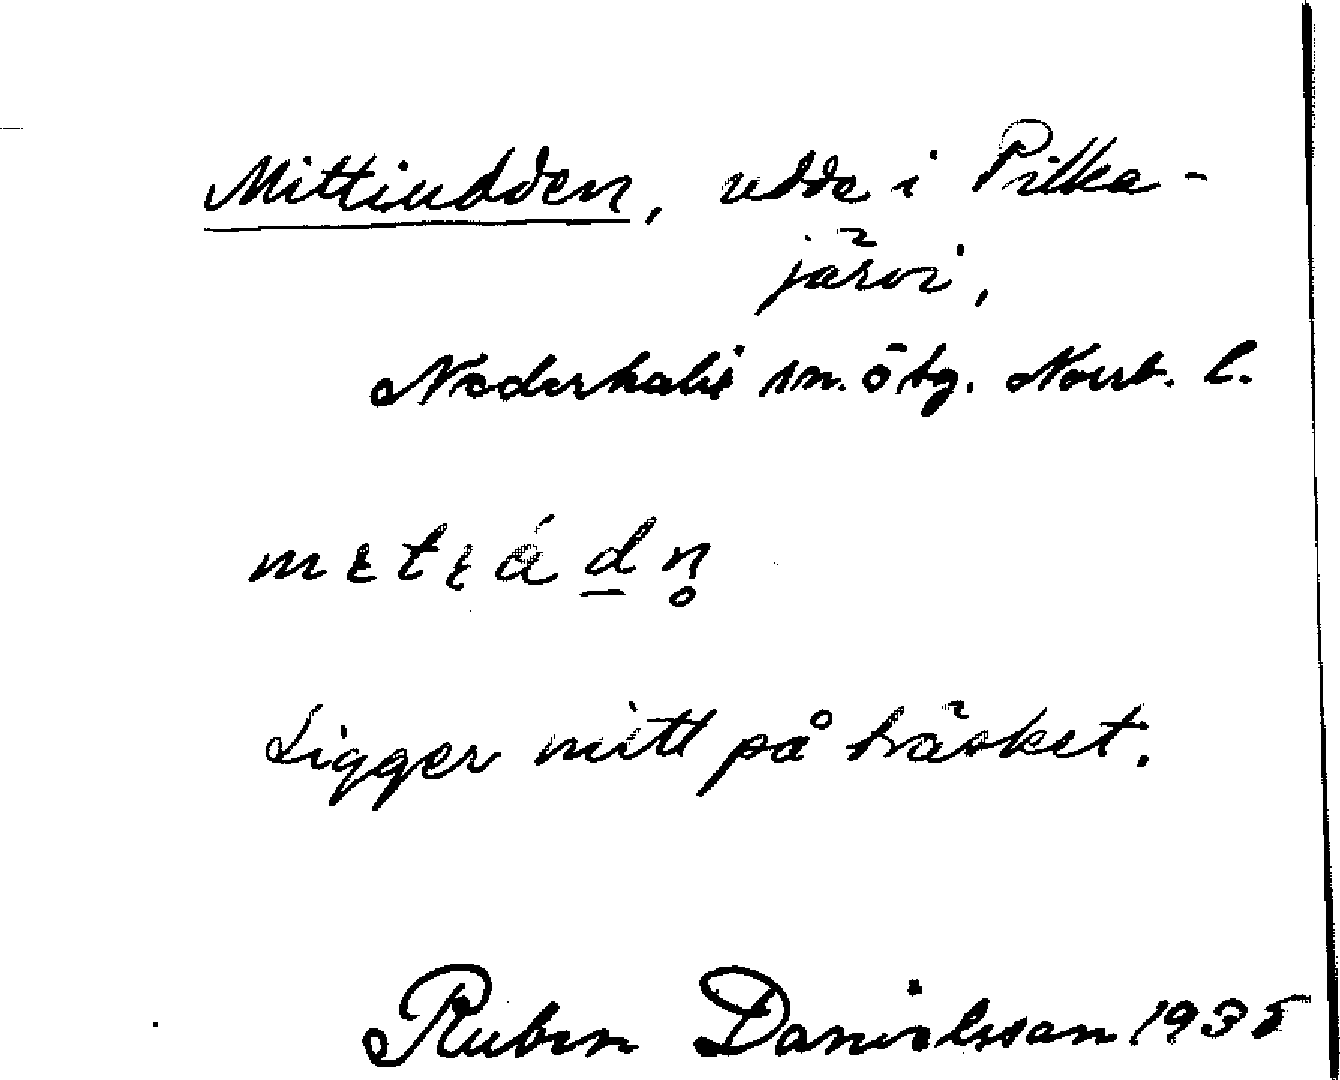 Mittiudden, udde i Pilka-
järvi,
Nederkalix sn. ö tg. Norrb. l.
mɛtɛádn̥
Ligger mitt på träsket.
Ruben Danielsson 1935